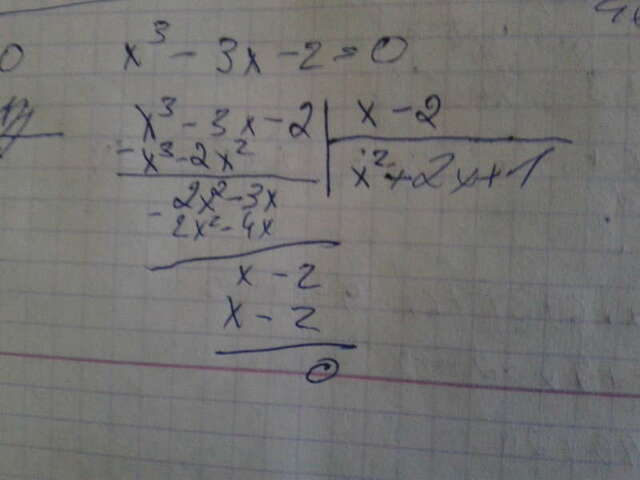 x³ - 3x - 2 = 0
x³ - 3x - 2 | x - 2
- x³ - 2x² x² + 2x + 1
2x² - 3x
- 2x² - 4x
x - 2
x - 2
0